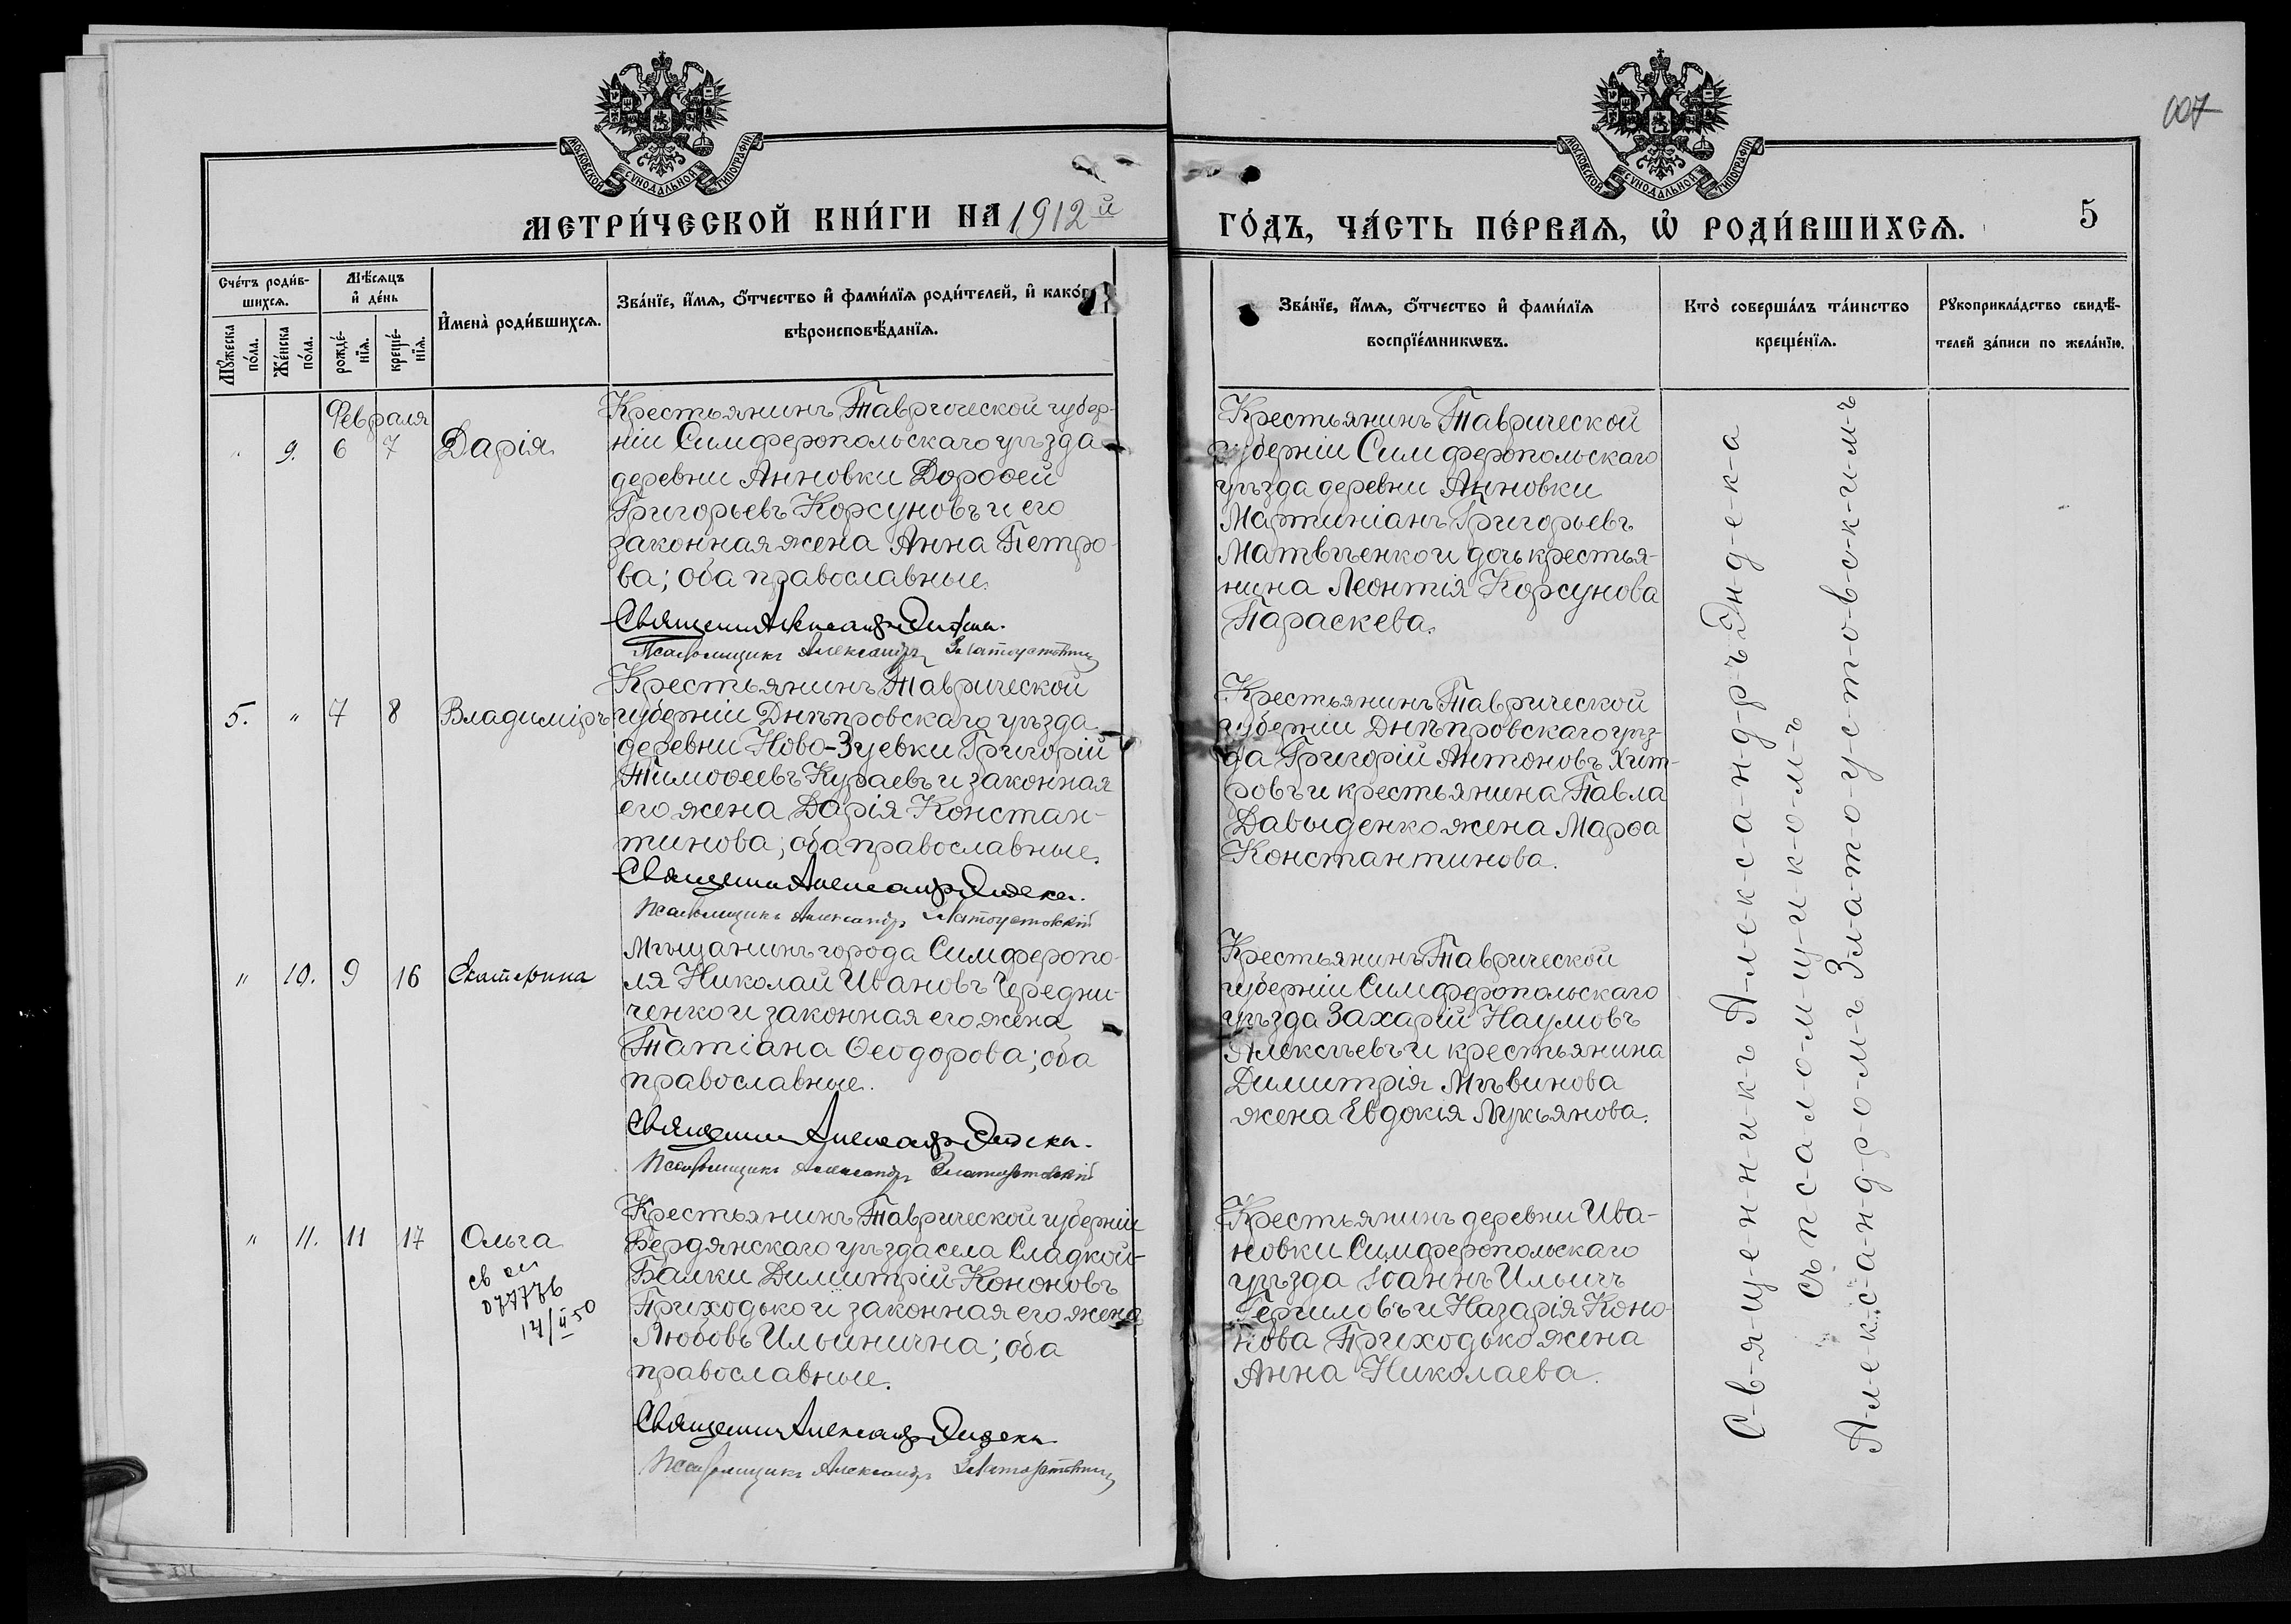 007
МОСКОВСКОЙ СѴНОДАЛЬНОЙ ТИПОГРАФІИ
МОСКОВСКОЙ СѴНОДАЛЬНОЙ ТИПОГРАФІИ
МЕТРИ́ЧЕСКОЙ КНИ́ГИ НА 1912й
ГО́ДЪ, ЧА́СТЬ ПЕ́РВАѦ, Ѡ҆ РОДИ́ВШИХСѦ.
5
Сче́тъ роди́в-
шихсѧ.
Мꙋ́жеска
по́ла.
Же́нска
по́ла.
Мѣ́сѧцъ
и҆ де́нь
рожде́-
нїѧ.
креще́-
нїѧ.
И҆мена̀ роди́вшихсѧ.
Зва́нїе, и҆́мѧ, ѻ҆́тчество и҆ фами́лїѧ роди́телей, и҆ како́гѡ
вѣроисповѣ́данїѧ.
Зва́нїе, и҆́мѧ, ѻ҆́тчество и҆ фами́лїѧ
воспрїе́мникѡвъ.
Кто̀ соверша́лъ та́инство
креще́нїѧ.
Рꙋкоприкла́дство свидѣ́-
телей за́писи по жела́нїю.
Февраля
" 9. 6 7 Дарія
Крестьянинъ Таврической губер-
ніи Симферопольскаго уѣзда
деревни Анновки Дорофей
Григорьевъ Корсуновъ и его
законная жена Анна Петро-
ва; оба православные.
Священникъ Александръ Эндека.
Псаломщикъ Александръ Златоустовскій
Крестьянинъ Таврической
губерніи Симферопольскаго
уѣзда деревни Анновки
Мартиніанъ Григорьевъ
Матвѣенко и дочь крестья-
нина Леонтія Корсунова
Параскева.
5. " 7 8 Владиміръ
Крестьянинъ Таврической
губерніи Днѣпровскаго уѣзда
деревни Ново-Зуевки Григорій
Тимоѳеевъ Кураевъ и законная
его жена Дарія Констан-
тинова; оба православные.
Священникъ Александръ Эндека.
Псаломщикъ Александръ Златоустовскій
Крестьянинъ Таврической
губерніи Днѣпровскаго уѣз-
да Григорій Антоновъ Хит-
ровъ и крестьянина Павла
Давыденко жена Марѳа
Константинова.
" 10. 9 16 Екатерина
Мѣщанинъ города Симферопо-
ля Николай Ивановъ Чередни-
ченко и законная его жена
Татіана Ѳеодорова; оба
православные.
Священникъ Александръ Эндека.
Псаломщикъ Александръ Златоустовскій
Крестьянинъ Таврической
губерніи Симферопольскаго
уѣзда Захарій Наумовъ
Алексѣевъ и крестьянина
Димитрія Мѣвинова
жена Евдокія Лукьянова.
" 11. 11 17 Ольга
св
077776
14/II 50
Крестьянинъ Таврической губерніи
Бердянскаго уѣзда села Сладкой-
Балки Димитрій Кононовъ
Приходько и законная его жена
Любовь Ильинична; оба
православные.
Священникъ Александръ Эндека
Псаломщикъ Александръ Златоустовскій
Крестьянинъ деревни Ива-
новки Симферопольскаго
уѣзда Іоаннъ Ильичъ
и Назарія Коно-
нова Приходько жена
Анна Николаева.
С-в-я-щ-е-н-н-и-к-ъ А-л-е-к-с-а-н-д-р-ъ Э-н-д-е-к-а
съ п-с-а-л-о-м-щ-и-к-о-м-ъ
А-л-е-к-с-а-н-д-р-о-м-ъ З-л-а-т-о-у-с-т-о-в-с-к-и-м-ъ